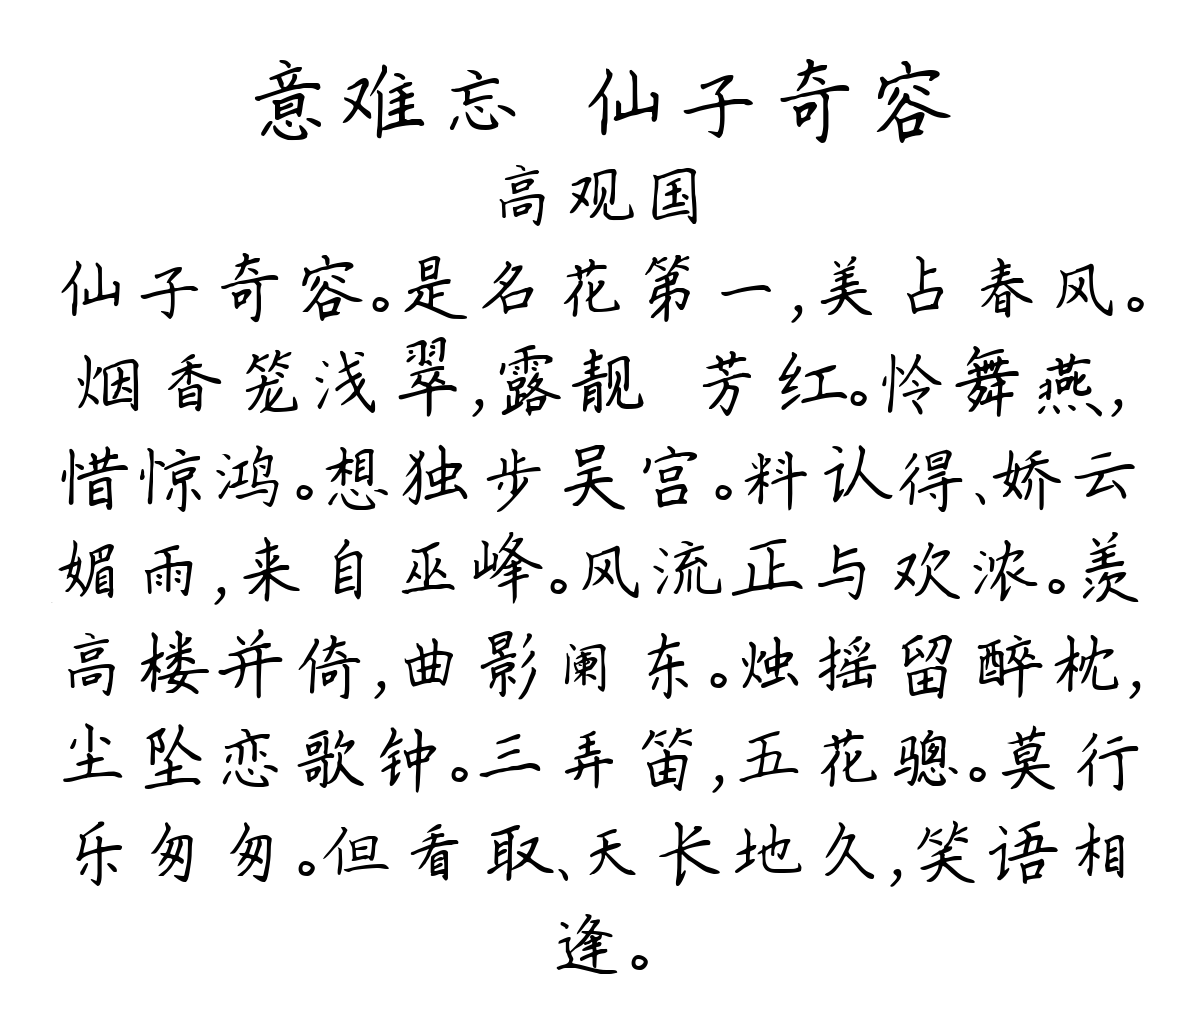 意难忘 仙子奇容
高观国
仙子奇容。是名花第一,美占春风。
烟香笼浅翠,露靓 芳红。怜舞燕,
惜惊鸿。想独步吴宫。料认得、娇云
媚雨,来自巫峰。风流正与欢浓。羡
高楼并倚,曲影阑东。烛摇留醉枕,
尘坠恋歌钟。三弄笛,五花骢。莫行
乐匆匆。但看取、天长地久,笑语相
逢。